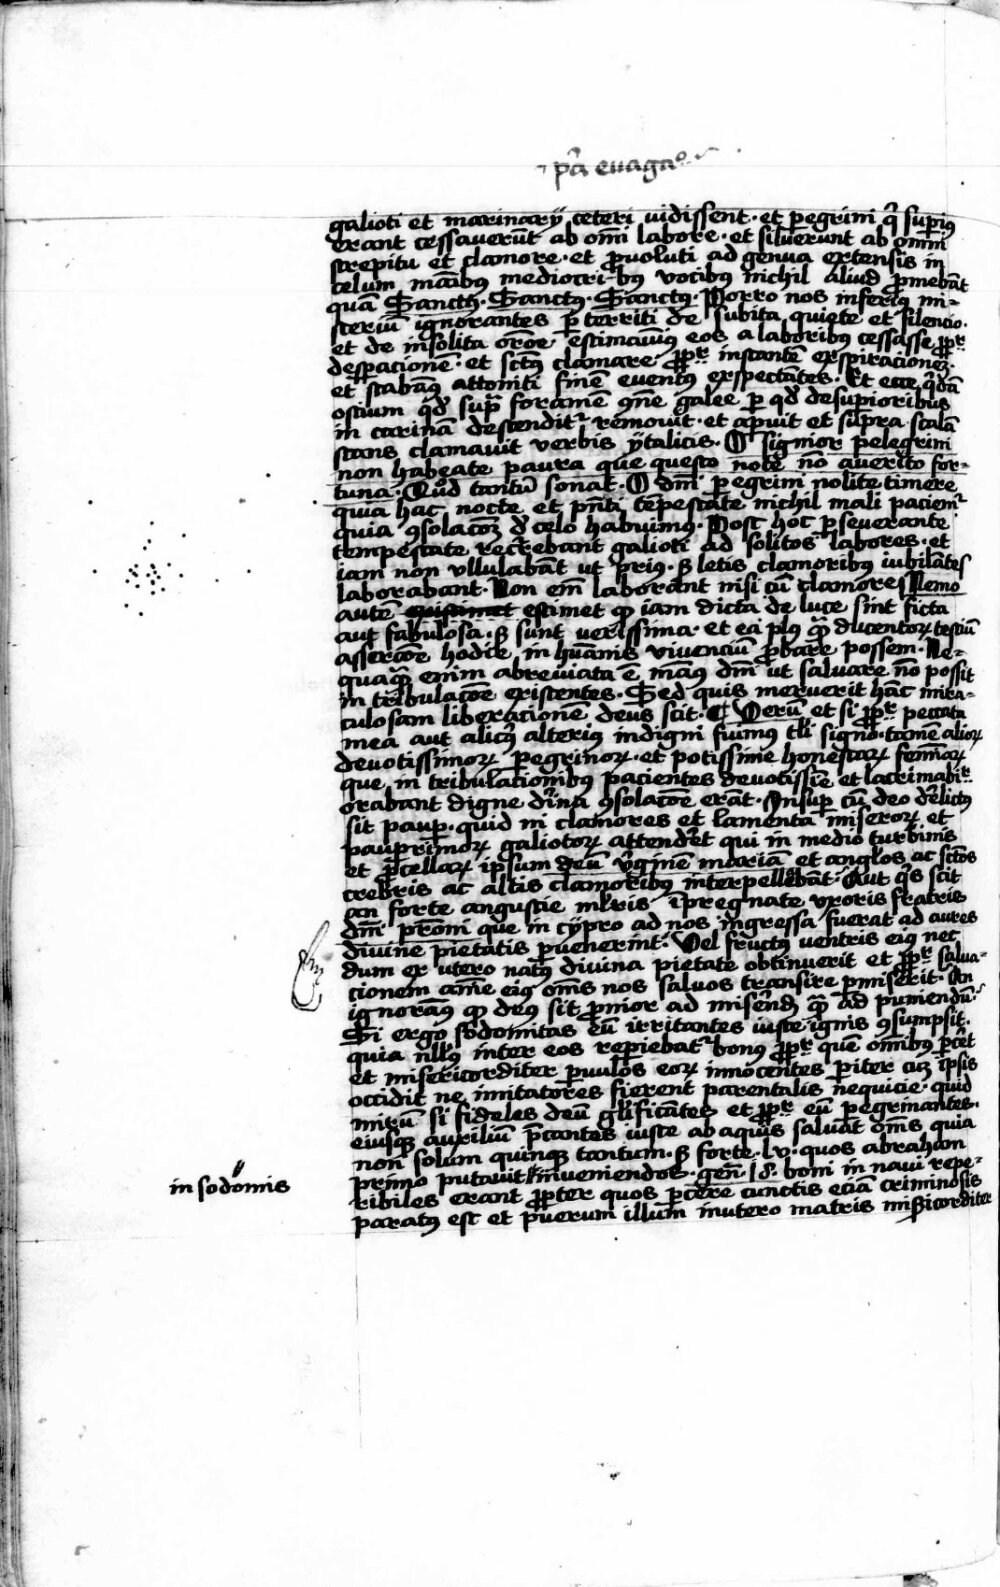 pͥa evagaᵒ
galioti et marinarÿ ceteri vidissent · et pegrini q̄ supiꝰ
erant cessaverūt ab om̄i labore · et siluerunt ab om̄i
strepitu et clamore · et pvoluti ad genua extensis in
celum manibꝰ mediocri-bꝰ vocibꝰ nichil aliud pmebāt
quā Sanctꝰ · Sanctꝰ · Sanctꝰ · Porro nos inferiꝰ mi-
steriū ignorantes pterriti de subita quiete et silencio ·
et de insolita oroe estimavimꝰ eos a laboribꝰ cessasse ppt
despacionē · et sctꝰ clamare ppt instantē exspiracionē ·
et stabamꝰ attoniti finē eventꝰ exspectātes · Et ecce q̄dā
ostium qd sup foramē ꝯne galee p qd desupioribus
in carinā descendit removit · et apuit et supra scalā
stans clamavit verbis ÿtalicis · O signior pelegrini
non habeate paura que questo note nō averito for-
tuna · Quod tantū sonat · O dn̄i pegrini nolite timere
quia hac nocte et pn̄ti tēpestate nichil mali paciem̄
quia ꝯsolacōꝫ de celo habuimꝰ · Post hoc pseverante
tempestate recrrebant galioti ad solitos labores · et
iam non vllulabant ut priꝰ · sꝫ letis clamoribus iubilātes
laborabant · Non em̄ laborant nisi cū clamores Nemo
autē estimet qp iam dicta de luce sint ficta
aut fabulosa · sꝫ sunt verissima · et ea plꝰ quā ducentoꝝ testiū
assercōe hodie in hūanis vivenciū pbare possem · Ne-
quaquā enim abreviata ē manꝰ dn̄i ut salvare nō possit
in tribulacōe existentes · Sed quis meruerit hāc mira-
culosam liberacionē deus scit · ¶ Verū et si ppt peccata
mea aut alicꝰ alterius indigni fuimus tli signo · tamē alioꝝ
devotissimoꝝ pegrinoꝝ · et potissime honestaꝝ femīaꝝ
que in tribulacionibꝰ pacientes devotissīe et lacrimabīr
orabant digne divīa ꝯsolacōe erāt · Insup cū deo delictꝰ
sit paup · quid ni clamores et lamenta miseroꝝ et
pauprimoꝝ galiotoꝝ attendet qui in medio turbinis
et pcellaꝝ ipsum deū v̄giniē mariā et anglos ac sctos
crebris ac altis clamoribus interpellebāt · Aut qis scit
an forte angustie mlieris ipregnate vxoris fratris
dn̄i prom que in cÿpro ad nos ingressa fuerat ad aures
divine pietatis pvenerint · Vel fructꝰ ventris eiꝰ nec
dum ex vtero natꝰ divina pietate obtinuerit et ppt salva-
cionem aīme eiꝰ om̄s nos salvos transire pmiserit · An
ignoramꝰ qp deꝰ sit pmior ad misend quā ad puniendū ·
Si ergo sodomitas eū irritantes iuste ignis ꝯsumpsit ·
quia nllꝰ inter eos repiebat bonꝰ ppt quē om̄ibꝰ pcet
et misericorditer pvulos eoꝝ innocentes piter cū ipsis
occidit ne imitatores fierent parentalis nequicie · quid
mirū si fideles deū glificātes et ppt eū pegrinantes ·
eiusqꝫ auxiliū pcantes iuste ab aquis salvat om̄s quia
non solum quinqꝫ tantum · sꝫ forte · lv · quos abraham
in sodomis
primo putavit inveniendos · gen̄ · 18 · boni in navi repe-
ribiles erant ppter quos pcere cunctis eciā criminosis
paratꝰ est et puerum illum inutero matris misicorditer